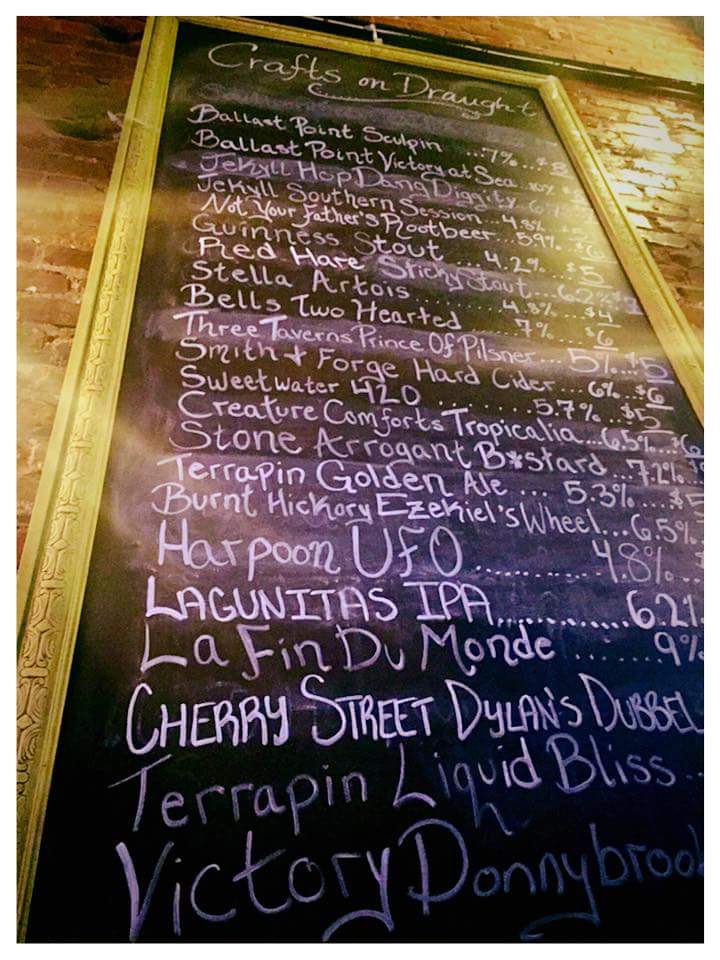 Crafts on Draught
Ballast Point Sculpin ...7%...$8
Ballast Point Victory at Sea..10%
Jekyll Hop Dang Diggity
Jekyll Southern Session...4.8%
Not Your Father's Rootbeer...5.9%
Guinness Stout ....4.2%...$5
Red Hare Sticky Stout...6.2%
Stella Artois ........4.8%...$4
Bells Two Hearted ......7%...$6
Three Taverns Prince Of Pilsner...5%..$5
Smith + Forge Hard Cider...6%..$6
Sweetwater 420 .........5.7%..$5
Creature Comforts Tropicalia...6.5%..$6
Stone Arrogant B*stard...7.2%
Terrapin Golden Ale ... 5.3%...$5
Burnt Hickory Ezekiel's Wheel...6.5%
Harpoon UFO ............4.8%..
LAGUNITAS IPA............6.21
La Fin Du Monde .......9%
CHERRY STREET DYLAN'S DUBBEL
Terrapin Liquid Bliss..
Victory Donnybrook